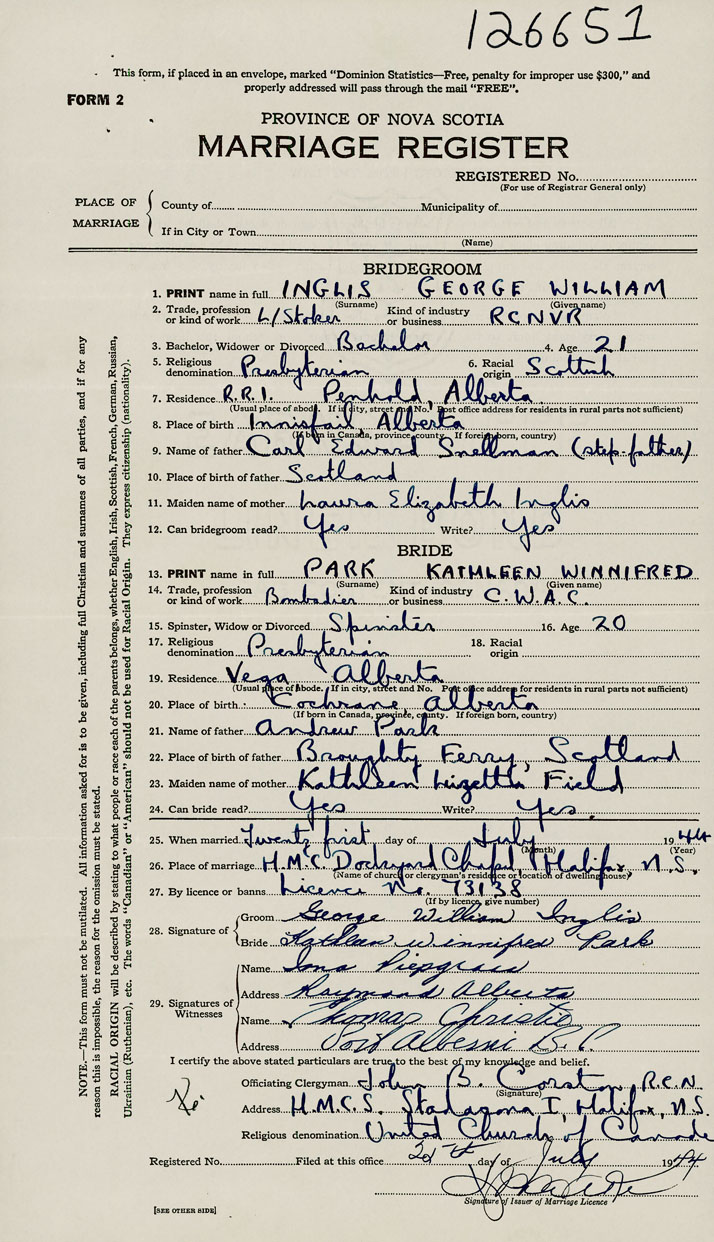 126651
This form, if placed in an envelope, marked "Dominion Statistics—Free, penalty for improper use $300," and
properly addressed will pass through the mail "FREE".
FORM 2
PROVINCE OF NOVA SCOTIA
MARRIAGE REGISTER
REGISTERED No.
(For use of Registrar General only)
PLACE OF MARRIAGE
County of Municipality of
If in City or Town
(Name)
BRIDEGROOM
1. PRINT name in full INGLIS GEORGE WILLIAM
(Surname) (Given name)
2. Trade, profession or kind of work L/Stoker Kind of industry or business RCNVR
3. Bachelor, Widower or Divorced Bachelor 4. Age 21
5. Religious denomination Presbyterian 6. Racial origin Scottish
7. Residence R.R.1. Penhold, Alberta
(Usual place of abode. If in city, street and No. Post office address for residents in rural parts not sufficient)
8. Place of birth Innisfail, Alberta
(If born in Canada, province, county. If foreign born, country)
9. Name of father Carl Edward Snellman (step-father)
10. Place of birth of father Scotland
11. Maiden name of mother Laura Elizabeth Inglis
12. Can bridegroom read? Yes Write? Yes
BRIDE
13. PRINT name in full PARK KATHLEEN WINNIFRED
(Surname) (Given name)
14. Trade, profession or kind of work Bombadier Kind of industry or business C.W.A.C.
15. Spinster, Widow or Divorced Spinster 16. Age 20
17. Religious denomination Presbyterian 18. Racial origin
19. Residence Vega Alberta
(Usual place of abode. If in city, street and No. Post office address for residents in rural parts not sufficient)
20. Place of birth Cochrane, Alberta
(If born in Canada, province, county. If foreign born, country)
21. Name of father Andrew Park
22. Place of birth of father Broughty Ferry, Scotland
23. Maiden name of mother Kathleen Lizetta Field
24. Can bride read? Yes Write? Yes.
25. When married Twenty first day of July 1944
(Month) (Year)
26. Place of marriage H.M.C. Dockyard Chapel, Halifax, N.S.
(Name of church or clergyman's residence or location of dwelling house)
27. By licence or banns Licence No. 73138
(If by licence, give number)
28. Signature of
Groom George William Inglis
Bride Kathleen Winnifred Park
29. Signatures of Witnesses
Name Iona Piepgrass
Address Raymond Alberta
Name Thomas Christie
Address Port Alberni B.C.
I certify the above stated particulars are true to the best of my knowledge and belief.
Officiating Clergyman John B. Corston, R.C.N.
(Signature)
Address H.M.C.S. Stadacona I, Halifax, N.S.
Religious denomination United Church of Canada
Registered No. Filed at this office day of July 1944
Signature of Issuer of Marriage Licence
[SEE OTHER SIDE]
NOTE.—This form must not be mutilated. All information asked for is to be given, including full Christian and surnames of all parties, and if for any
reason this is impossible, the reason for the omission must be stated.
RACIAL ORIGIN will be described by stating to what people or race each of the parents belongs, whether English, Irish, Scottish, French, German, Russian,
Ukrainian (Ruthenian), etc. The words "Canadian" or "American" should not be used for Racial Origin. They express citizenship (nationality).